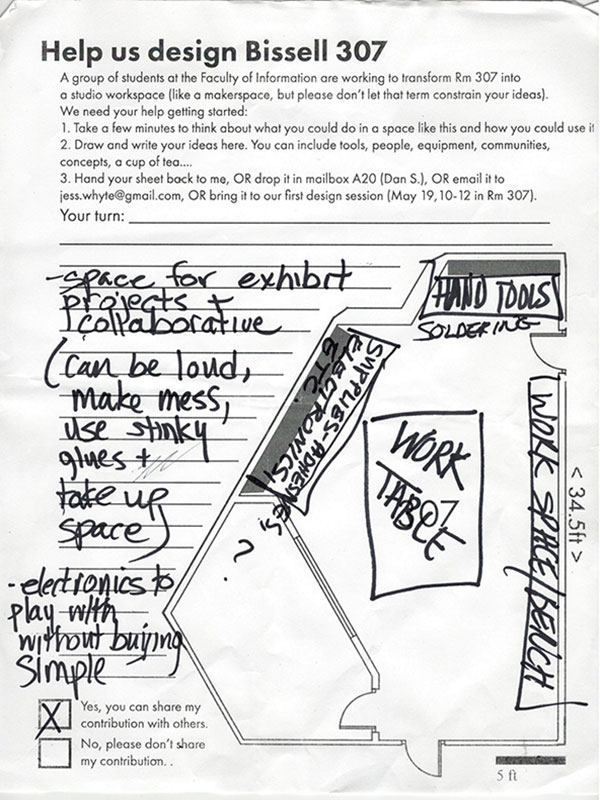 Help us design Bissell 307
A group of students at the Faculty of Information are working to transform Rm 307 into
a studio workspace (like a makerspace, but please don't let that term constrain your ideas).
We need your help getting started:
1. Take a few minutes to think about what you could do in a space like this and how you could use it
2. Draw and write your ideas here. You can include tools, people, equipment, communities,
concepts, a cup of tea....
3. Hand your sheet back to me, OR drop it in mailbox A20 (Dan S.), OR email it to
jess.whyte@gmail.com, OR bring it to our first design session (May 19,10-12 in Rm 307).
Your turn:
-space for exhibit
projects +
collaborative
(can be loud,
make mess,
use stinky
glues +
take up
space)
-electronics to
play with
without buying
simple
HAND TOOLS
SOLDERING
SUPPLIES-ADHESIVES,
ELECTRONICS,
ETC.
WORK
TABLE
WORK SPACE/BENCH
< 34.5ft >
?
X
Yes, you can share my
contribution with others.
No, please don't share
my contribution. .
5 ft